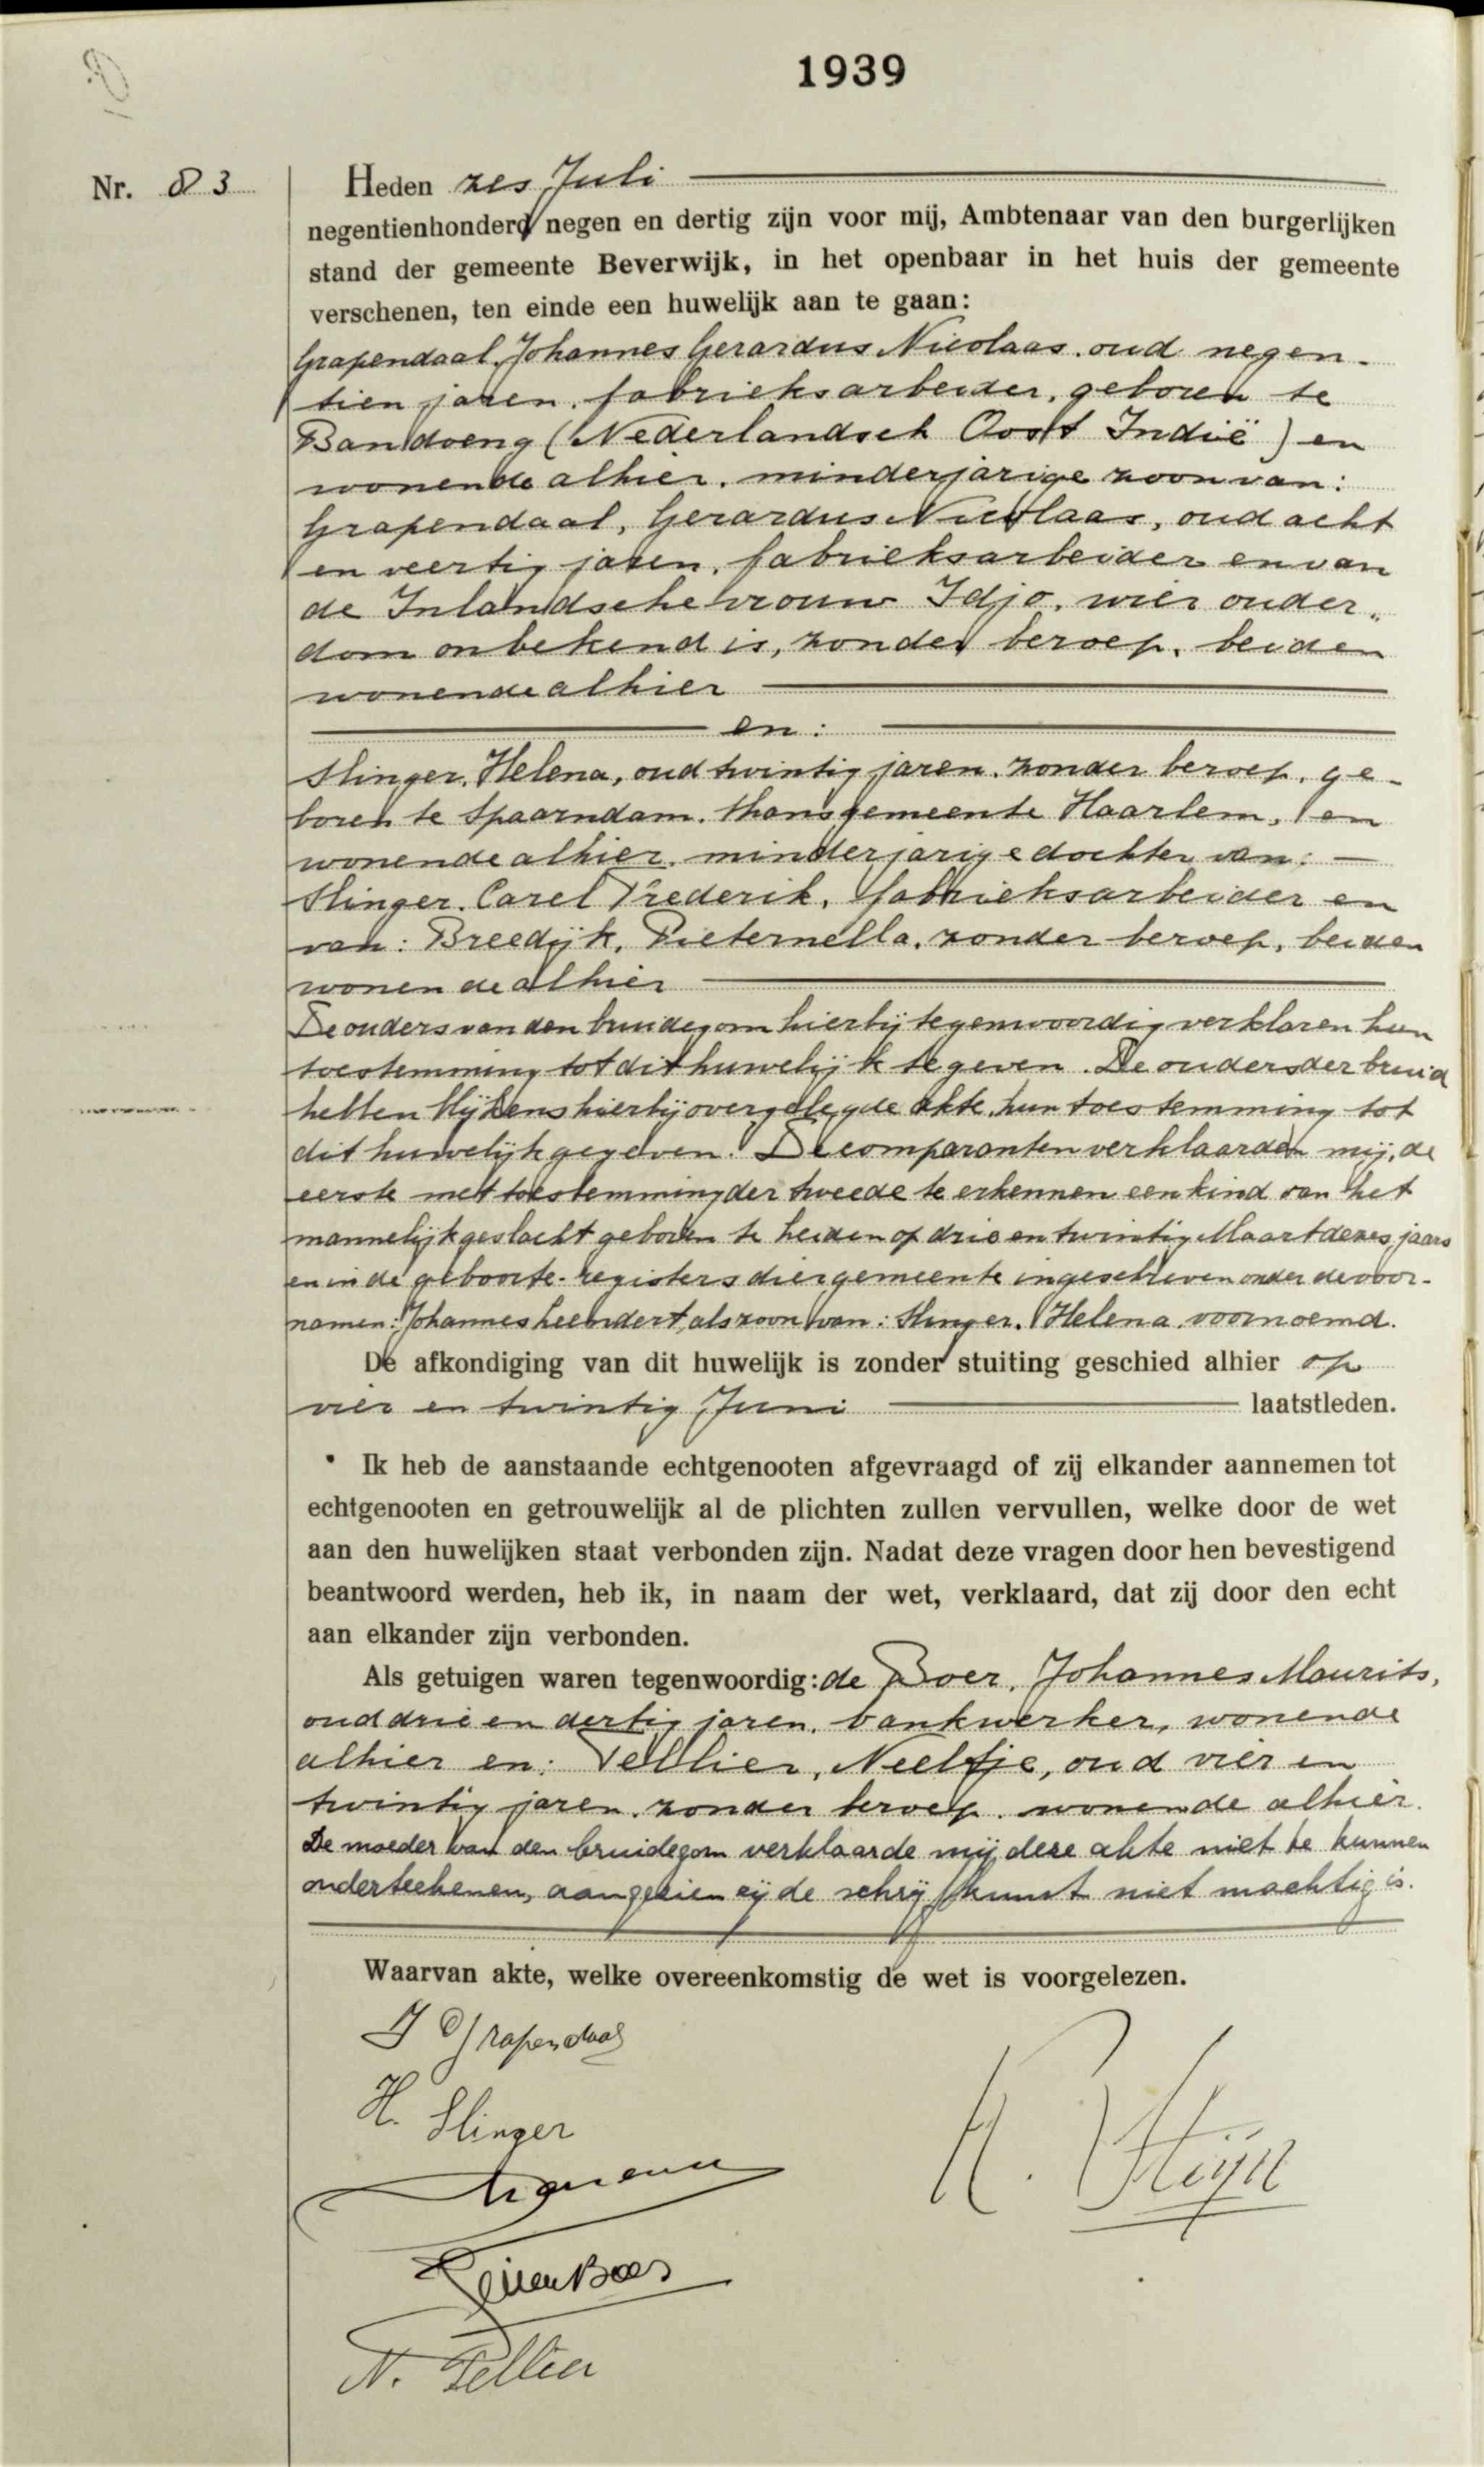 1939
Nr. 83
Heden zes Juli
negentienhonderd negen en dertig zijn voor mij, Ambtenaar van den burgerlijken
stand der gemeente Beverwijk, in het openbaar in het huis der gemeente
verschenen, ten einde een huwelijk aan te gaan:
Grapendaal, Johannes Gerardus Nicolaas, oud negen-
tien jaren, fabrieksarbeider, geboren te
Bandoeng (Nederlandsch Oost Indië) en
wonende alhier, minderjarige zoon van:
Grapendaal, Gerardus Nicolaas, oud acht
en veertig jaren, fabrieksarbeider en van
de Inlandsche vrouw Idjo, wier ouder-
dom onbekend is, zonder beroep, beiden
wonende alhier
en:
Slinger, Helena, oud twintig jaren, zonder beroep, ge-
boren te Spaarndam, thans gemeente Haarlem, en
wonende alhier, minderjarige dochter van:
Slinger, Carel Frederik, fabrieksarbeider en
van: Breedijk, Pieternella, zonder beroep, beiden
wonende alhier
De ouders van den bruidegom hierbij tegenwoordig verklaren hun
toestemming tot dit huwelijk te geven. De ouders der bruid
hebben blijkens hierbij overgelegde akte hun toestemming tot
dit huwelijk gegeven. De comparanten verklaarden mij, de
eerste met toestemming der tweede te erkennen een kind van het
mannelijk geslacht geboren te Leiden op drie en twintig Maart dezes jaars
en in de geboorte-registers dier gemeente ingeschreven onder de voor-
namen: Johannes Leendert, als zoon van: Slinger, Helena voornoemd.
De afkondiging van dit huwelijk is zonder stuiting geschied alhier op
vier en twintig Juni laatstleden.
Ik heb de aanstaande echtgenooten afgevraagd of zij elkander aannemen tot
echtgenooten en getrouwelijk al de plichten zullen vervullen, welke door de wet
aan den huwelijken staat verbonden zijn. Nadat deze vragen door hen bevestigend
beantwoord werden, heb ik, in naam der wet, verklaard, dat zij door den echt
aan elkander zijn verbonden.
Als getuigen waren tegenwoordig: de Boer, Johannes Maurits,
oud drie en dertig jaren, bankwerker, wonende
alhier en: Tellier, Neeltje, oud vier en
twintig jaren, zonder beroep, wonende alhier.
De moeder van den bruidegom verklaarde mij deze akte niet te kunnen
onderteekenen, aangezien zij de schrijfkunst niet machtig is.
Waarvan akte, welke overeenkomstig de wet is voorgelezen.
J Grapendaal
H. Slinger
N. Tellier